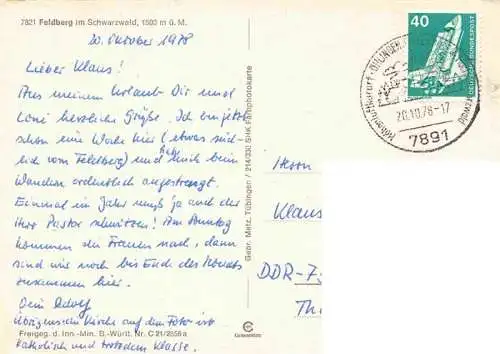 7821 Feldberg im Schwarzwald, 1500 m ü. M.
20. Oktober 1978
Lieber Klaus!
Aus meinem Urlaub Dir und
Loni herzliche Grüße. Ich bin jetzt
schon eine Woche hier (etwas süd-
lich vom Feldberg) und habe mich beim
Wandern ordentlich angestrengt.
Einmal im Jahr muß ja auch der
Herr Pastor schwitzen! Am Sonntag
kommen die Frauen nach, dann
sind wir noch bis Ende des Monats
zusammen hier.
Dein Adolf
Übrigens: die Kirche auf dem Foto ist
Freigeg. d. Inn.-Min. B.-Württ. Nr. C 21/2856a
katholisch und trotzdem Klasse.
Gebr. Metz, Tübingen / 214/330 SHK Farbphotokarte
40
DEUTSCHE BUNDESPOST
Höhenluftkurort
20.10.78-17
7891
Herrn
Klaus
DDR-7
Th